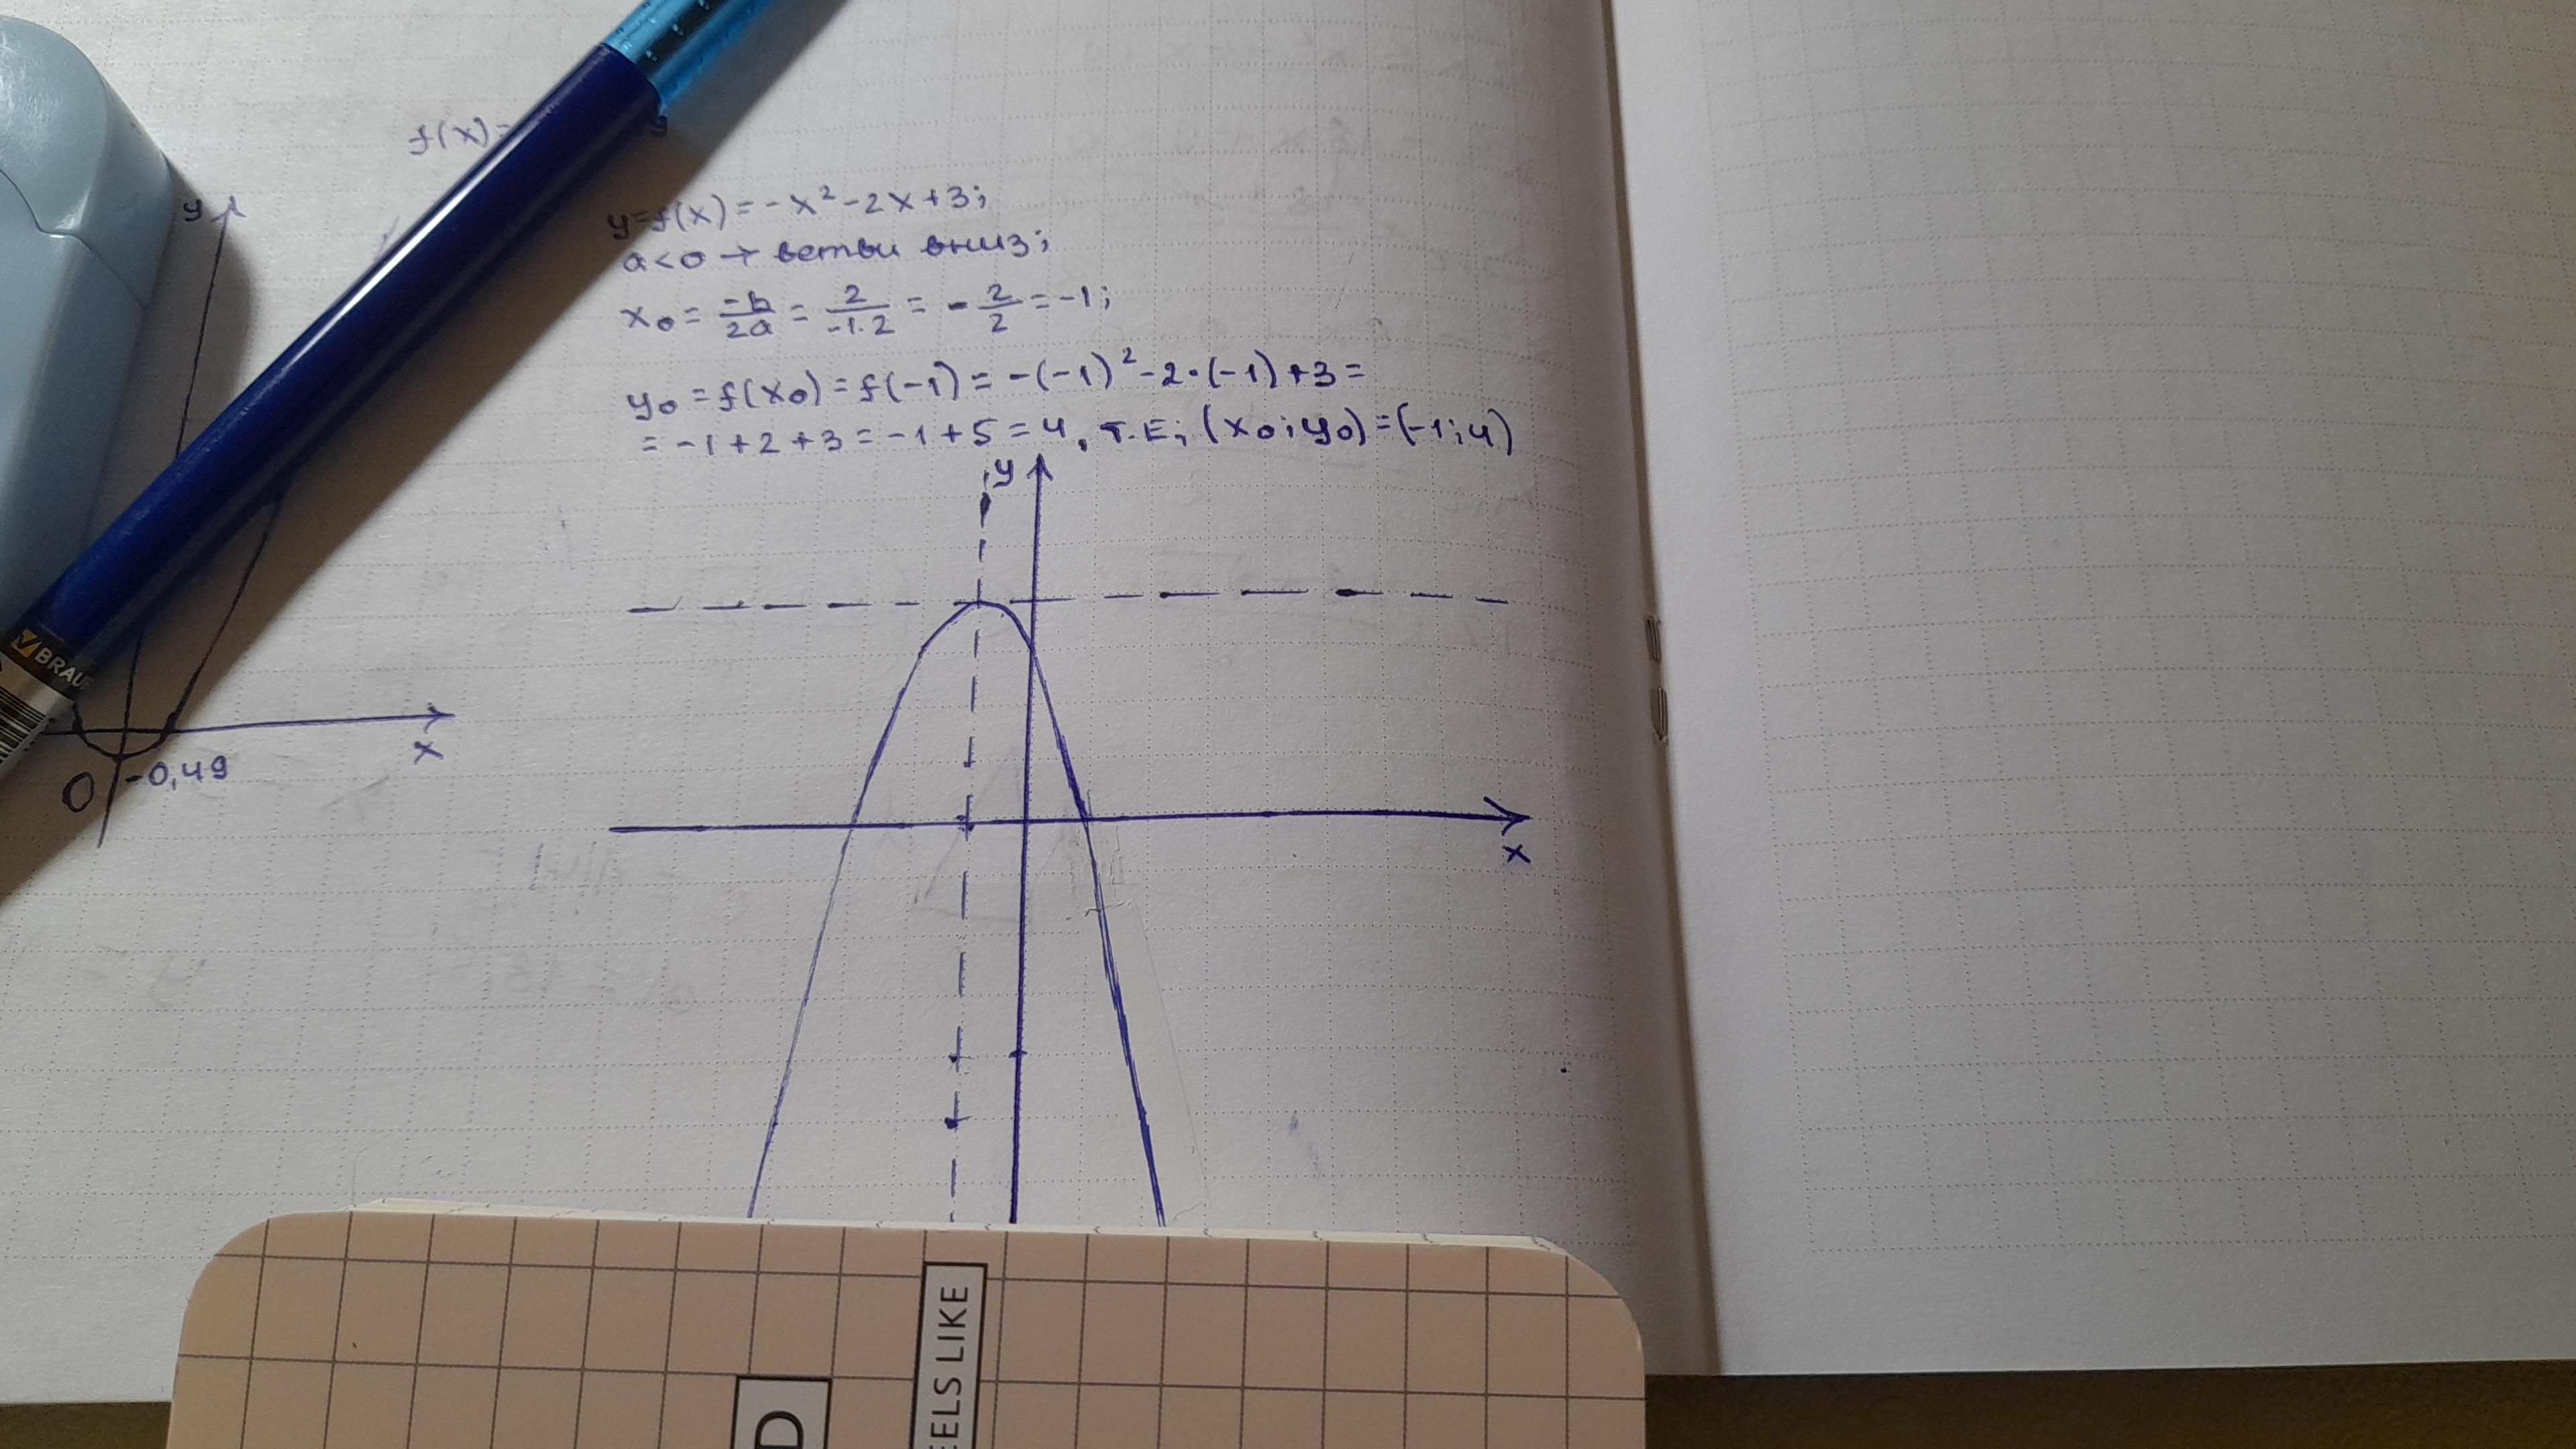 f(x)=
y
y=f(x)=-x²-2x+3;
a<0→ветви вниз;
x₀=-b/2a=2/-1·2=-2/2=-1;
y₀=f(x₀)=f(-1)=-(-1)²-2·(-1)+3=
=-1+2+3=-1+5=4, т.Е; (x₀;y₀)=(-1;4)
y
x
x
O
-0,49
BRAU
EELS LIKE
D